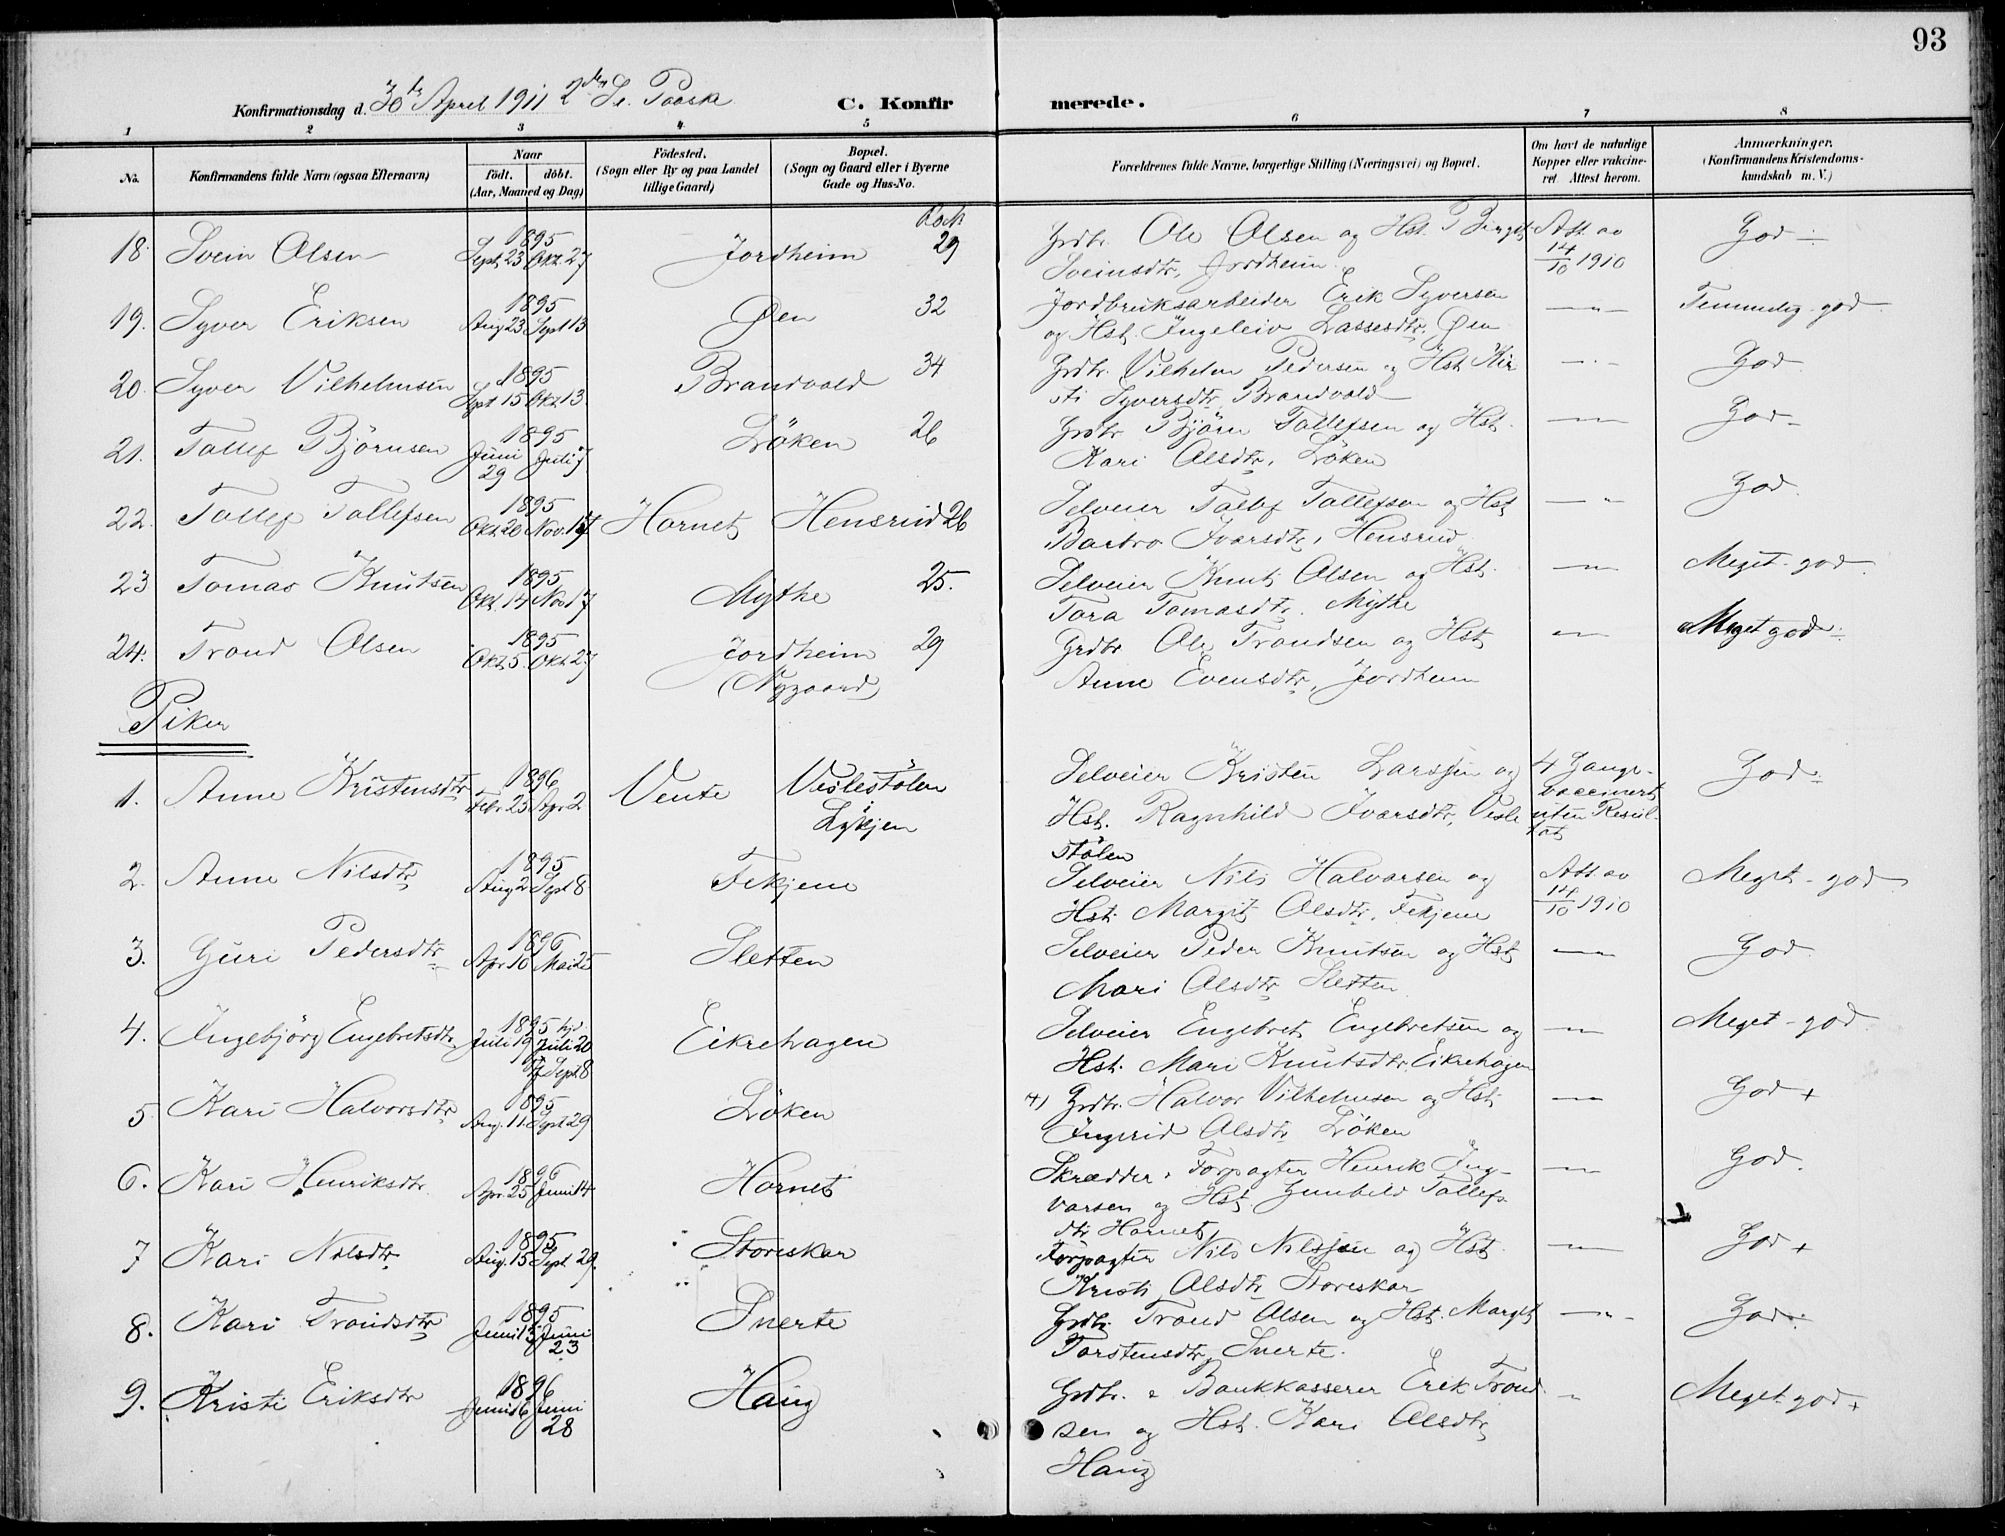 93
Konfirmationsdag d. 30te April 1911 2den S. e. Paaske C. Konfirmerede.
1 2 3 4 5 6 7 8
No. Konfirmandens fulde Navn (ogsaa Efternavn) Naar födt. döbt. (Aar, Maaned og Dag) Födested. (Sogn eller By og paa Landet tillige Gaard) Bopæl. (Sogn og Gaard eller i Byerne Gade og Hus-No.
Forældrenes fulde Navne, borgerlige Stilling (Næringsvei) og Bopæl. Om havt de naturlige Kopper eller vakcineret Attest herom. Anmærkninger. (Konfirmandens Kristendomskundskab m. V.)
18. Svein Olsen 1895 Sept 23 Okt. 27 Jordheim 29 Grdbr. Ole Olsen og Hst. Birgit Att. av God
Sveinsdtr, Jordheim. 14/10 1910
19. Syver Eriksen 1895 Aug 23 Sept 13 Øen 32 Jordbruksarbeider Erik Syversen — " — Temmelig god
og Hst. Ingeleiv Lassesdtr. Øen
20. Syver Vilhelmsen 1895 Sept 15 Okt. 13 Brandvold 34 Grdbr. Vilhelm Pedersen og Hst. Kir — " — God
sti Syversdtr Brandvold
21. Tollef Björnsen 1895 Juni 29 Juli 7 Löken 26 Grdbr Björn Tollefsen og Hst. — " — God
Kari Olsdtr, Löken
22. Tollef Tollefsen 1895 Okt. 20 Nov. 17 Hornet Hensrud 26 Selveier Tollef Tollefsen og Hst — " — God.
Barbro Ivarsdtr, Hensrud
23 Tomas Knutsen 1895 Okt. 14 Nov 17 Mythe 25. Selveier Knut Olsen og Hst. — " — Meget god.
Tora Tomasdtr. Mythe
24. Trond Olsen 1895 Okt. 5. Okt. 27 Jordheim 29 Grdbr Ole Trondsen og Hst — " — Meget god
(Nygaard) Anne Evensdtr, Jordheim
Piker
1. Anne Kristensdtr 1896 Febr. 23 Apr. 2 Vente Veslestölen Selveier Kristen Larssen og 4 Gange God
Lykjen Hst. Ragnhild Ivarsdtr, Vesle vaccinert uten Resul-
stölen tat
2. Anne Nilsdtr 1895 Aug 2 Sept 8 Fekjene Selveier Nils Halvorsen og Att. av Meget god
Hst. Margit Olsdtr, Fekjene 14/10 1910
3. Guri Pedersdtr 1896 Apr. 10 Mai 25 Sletten Selveier Peder Knutsen og Hst — " — God.
Mari Olsdtr Sletten
4. Ingebjörg Engebretsdtr 1895 Juli 19 hjd. Juli 20 Sept. 8 Eikrehagen Selveier Engebret Engebretsen og — " — Meget god
Hst. Mari Knutsdtr. Eikrehagen
5 Kari Halvorsdtr 1895 Aug. 11. Sept 29 Löken 4) Grdbr. Halvor Vilhelmsen og Hst. — " — God +
Ingerid Olsdtr Löken
6. Kari Henriksdtr 1896 Apr. 25 Juni 14 Hornet Skrædder, Forpagter Henrik Ing- — " — God.
varsen og Hst. Gunhild Tollefs
dtr Hornet
7 Kari Nilsdtr 1895 Aug. 15 Sept 29. Storeskar Forpagter Nils Nilssen og Hst. — " — God +
Kristi Olsdtr Storeskar
8. Kari Trondsdtr 1895 Juni 13. Juni 23 Snerte Grdbr. Trond Olsen og Hst. Margit — " — God.
Torstensdtr, Snerte.
9. Kristi Eriksdtr 1896 Juni 6 Juni 28 Haug Grdbr. & Bankkasserer Erik Trond " Meget god +
sen og Hst. Kari Olsdtr
Haug